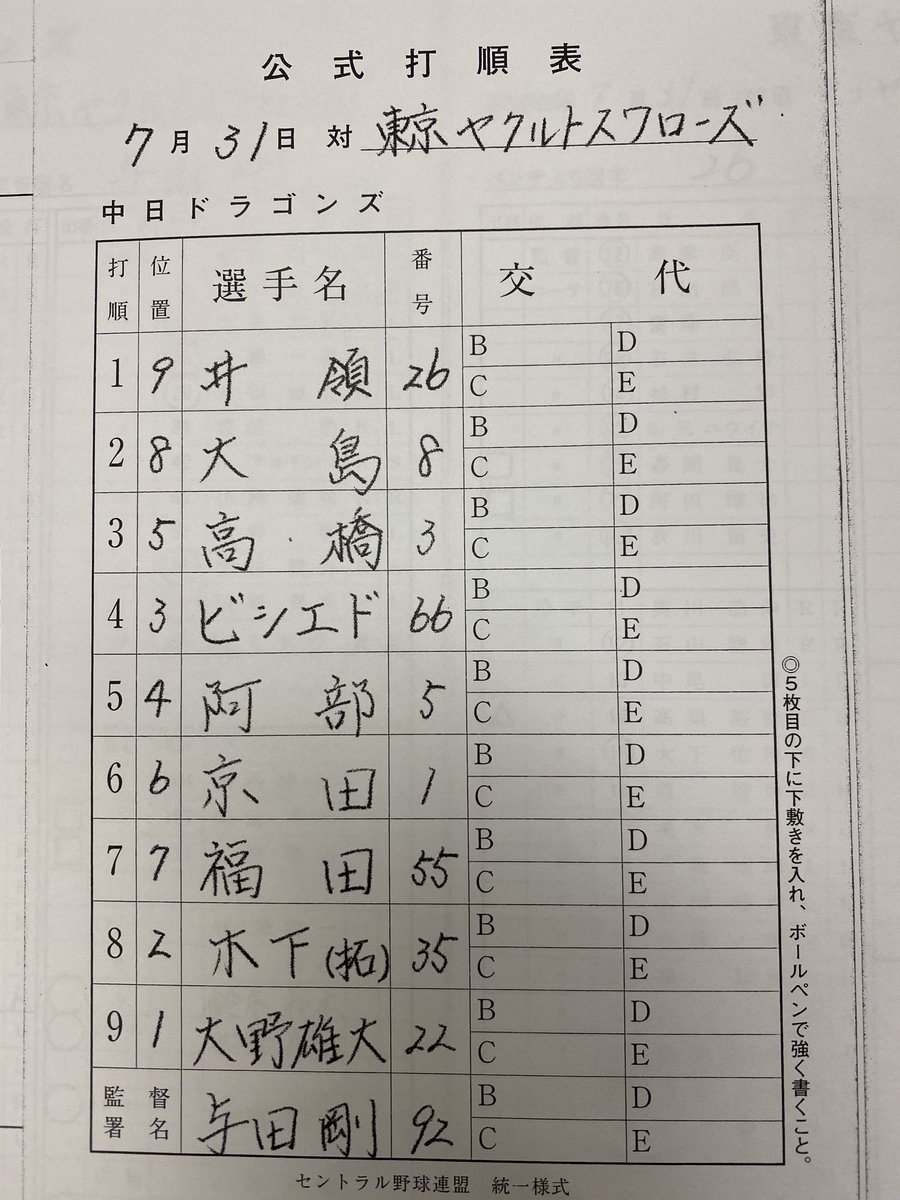 公式打順表
7月31日 対 東京ヤクルトスワローズ
中日ドラゴンズ
打順 位置 選手名 番号 交代
1 9 井領 26 B D
C E
2 8 大島 8 B D
C E
3 5 高橋 3 B D
C E
4 3 ビシエド 66 B D
C E
5 4 阿部 5 B D
C E
6 6 京田 1 B D
C E
7 7 福田 55 B D
C E
8 2 木下(拓) 35 B D
C E
9 1 大野雄大 22 B D
C E
監督署名 与田剛 92 B D
C E
◎5枚目の下に下敷きを入れ、ボールペンで強く書くこと。
セントラル野球連盟 統一様式